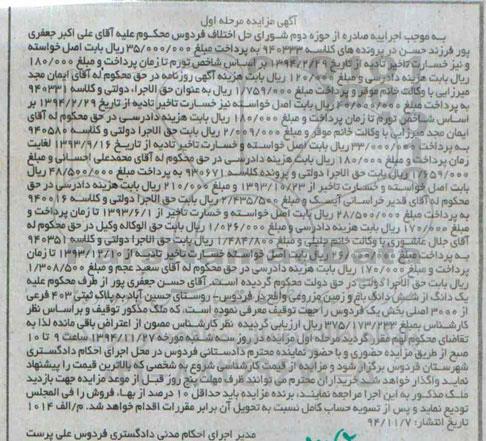 آگهی مزایده مرحله اول
به موجب اجراییه صادره از حوزه دوم شورای حل اختلاف فردوس محکوم علیه آقای علی اکبر جعفری
پور فرزند حسن در پرونده های کلاسه ۹۴۰۳۳۳ به پرداخت مبلغ ۳۵/۰۰۰/۰۰۰ ریال بابت اصل خواسته
و نیز خسارت تاخیر تادیه از تاریخ ۱۳۹۴/۲/۲۹ بر اساس شاخص تورم تا زمان پرداخت و مبلغ ۱۸۰/۰۰۰
ریال بابت هزینه دادرسی و مبلغ ۱۲۰/۰۰۰ ریال بابت هزینه آگهی روزنامه در حق محکوم له آقای ایمان مجد
میرزایی با وکالت خانم موقر و پرداخت مبلغ ۱/۷۵۹/۰۰۰ ریال به عنوان حق الاجرا، دولتی و کلاسه ۹۴۰۳۳۱
به پرداخت مبلغ ۴۰/۰۰۰/۰۰۰ ریال بابت اصل خواسته نیز خسارت تاخیر تادیه از تاریخ ۱۳۹۴/۲/۲۹ بر
اساس شاخص تورم تا زمان پرداخت و مبلغ ۱۸۰/۰۰۰ ریال بابت هزینه دادرسی در حق محکوم له آقای
ایمان مجد میرزایی با وکالت خانم موقر و مبلغ ۲/۰۰۹/۰۰۰ ریال بابت حق الاجرا دولتی و کلاسه ۹۴۰۵۸۰
به پرداخت ۳۳/۰۰۰/۰۰۰ ریال بابت اصل خواسته و خسارت تاخیر تادیه از تاریخ ۱۳۹۳/۹/۱۶ لغایت
زمان پرداخت و مبلغ ۱۸۰/۰۰۰ ریال بابت هزینه دادرسی در حق محکوم له آقای محمدعلی احسانی و مبلغ
۱/۶۵۹/۰۰۰ ریال بابت حق الاجرا دولتی و پرونده کلاسه ۹۳۰۶۷۱ به پرداخت مبلغ ۴۸/۵۰۰/۰۰۰ ریال
بابت اصل خواسته و خسارت تاخیر از ۱۳۹۳/۱۰/۲۳ و مبلغ ۲۱۰/۰۰۰ ریال بابت هزینه دادرسی در حق
محکوم له آقای قدیر خراسانی آیسک و مبلغ ۲/۴۳۵/۵۰۰ ریال بابت حق الاجرا دولتی و کلاسه ۹۴۰۰۱۶
به پرداخت مبلغ ۲۸/۵۰۰/۰۰۰ ریال بابت اصل خواسته و خسارت تاخیر از ۱۳۹۳/۶/۱ تا زمان پرداخت و
مبلغ ۱۷۰/۰۰۰ ریال بابت هزینه دادرسی و مبلغ ۱/۰۲۶/۰۰۰ ریال بابت حق الوکاله وکیل در حق محکوم له
آقای جلال عاشوری با وکالت خانم جلیلی و مبلغ ۱/۴۸۴/۸۰۰ ریال بابت حق الاجرا دولتی و کلاسه ۹۴۰۳۵۱
به پرداخت مبلغ ریال بابت اصل خواسته خسارت تاخیر تادیه از ۱۳۹۳/۱۲/۱۰ تا زمان
پرداخت و مبلغ ۱۷۰/۰۰۰ ریال بابت هزینه دادرسی در حق محکوم له آقای سعید عجم و مبلغ ۱/۳۰۸/۵۰۰
ریال بابت حق الاجرا دولتی در حق دولت محکوم گردیده است. آقای حسن جعفری پور از طرف محکوم علیه
یک دانگ از شش دانگ باغ و زمین مزروعی واقع در فردوس - روستای حسین آباد به پلاک ثبتی ۴۰۳ فرعی
از ۳۰۰۰ اصلی بخش یک فردوس را جهت توقیف معرفی نموده است، که ملک مذکور توقیف و بر اساس نظر
کارشناس بمبلغ ۳۷۵/۱۷۳/۲۳۳ ریال ارزیابی گردیده نظر کارشناس مصون از اعتراض باقی مانده لذا به
تقاضای محکوم لهم مقرر گردید مرحله اول مزایده در روز سه شنبه مورخه ۱۳۹۴/۱۱/۲۷ ساعت ۹ تا ۱۰
صبح از طریق مزایده حضوری و با حضور نماینده محترم دادستانی فردوس در محل اجرای احکام دادگستری
شهرستان فردوس برگزار شود و مزایده از قیمت کارشناسی شروع به شخصی که بالاترین قیمت را پیشنهاد
نماید واگذار خواهد شد. خریداران محترم می توانند ظرف مهلت پنج روز قبل از موعد مزایده جهت بازدید
ملک مذکور به این اجرا مراجعه نمایند، برنده مزایده باید حداقل ۱۰ درصد از بها، فروش را فی المجلس
تودیع نماید و پس از تسویه حساب کامل نسبت به تحویل آن برابر مقررات اقدام خواهد شد. م/الف ۱۰۱۴
تاریخ انتشار: ۹۴/۱۱/۷
مدیر اجرای احکام مدنی دادگستری فردوس علی پرست